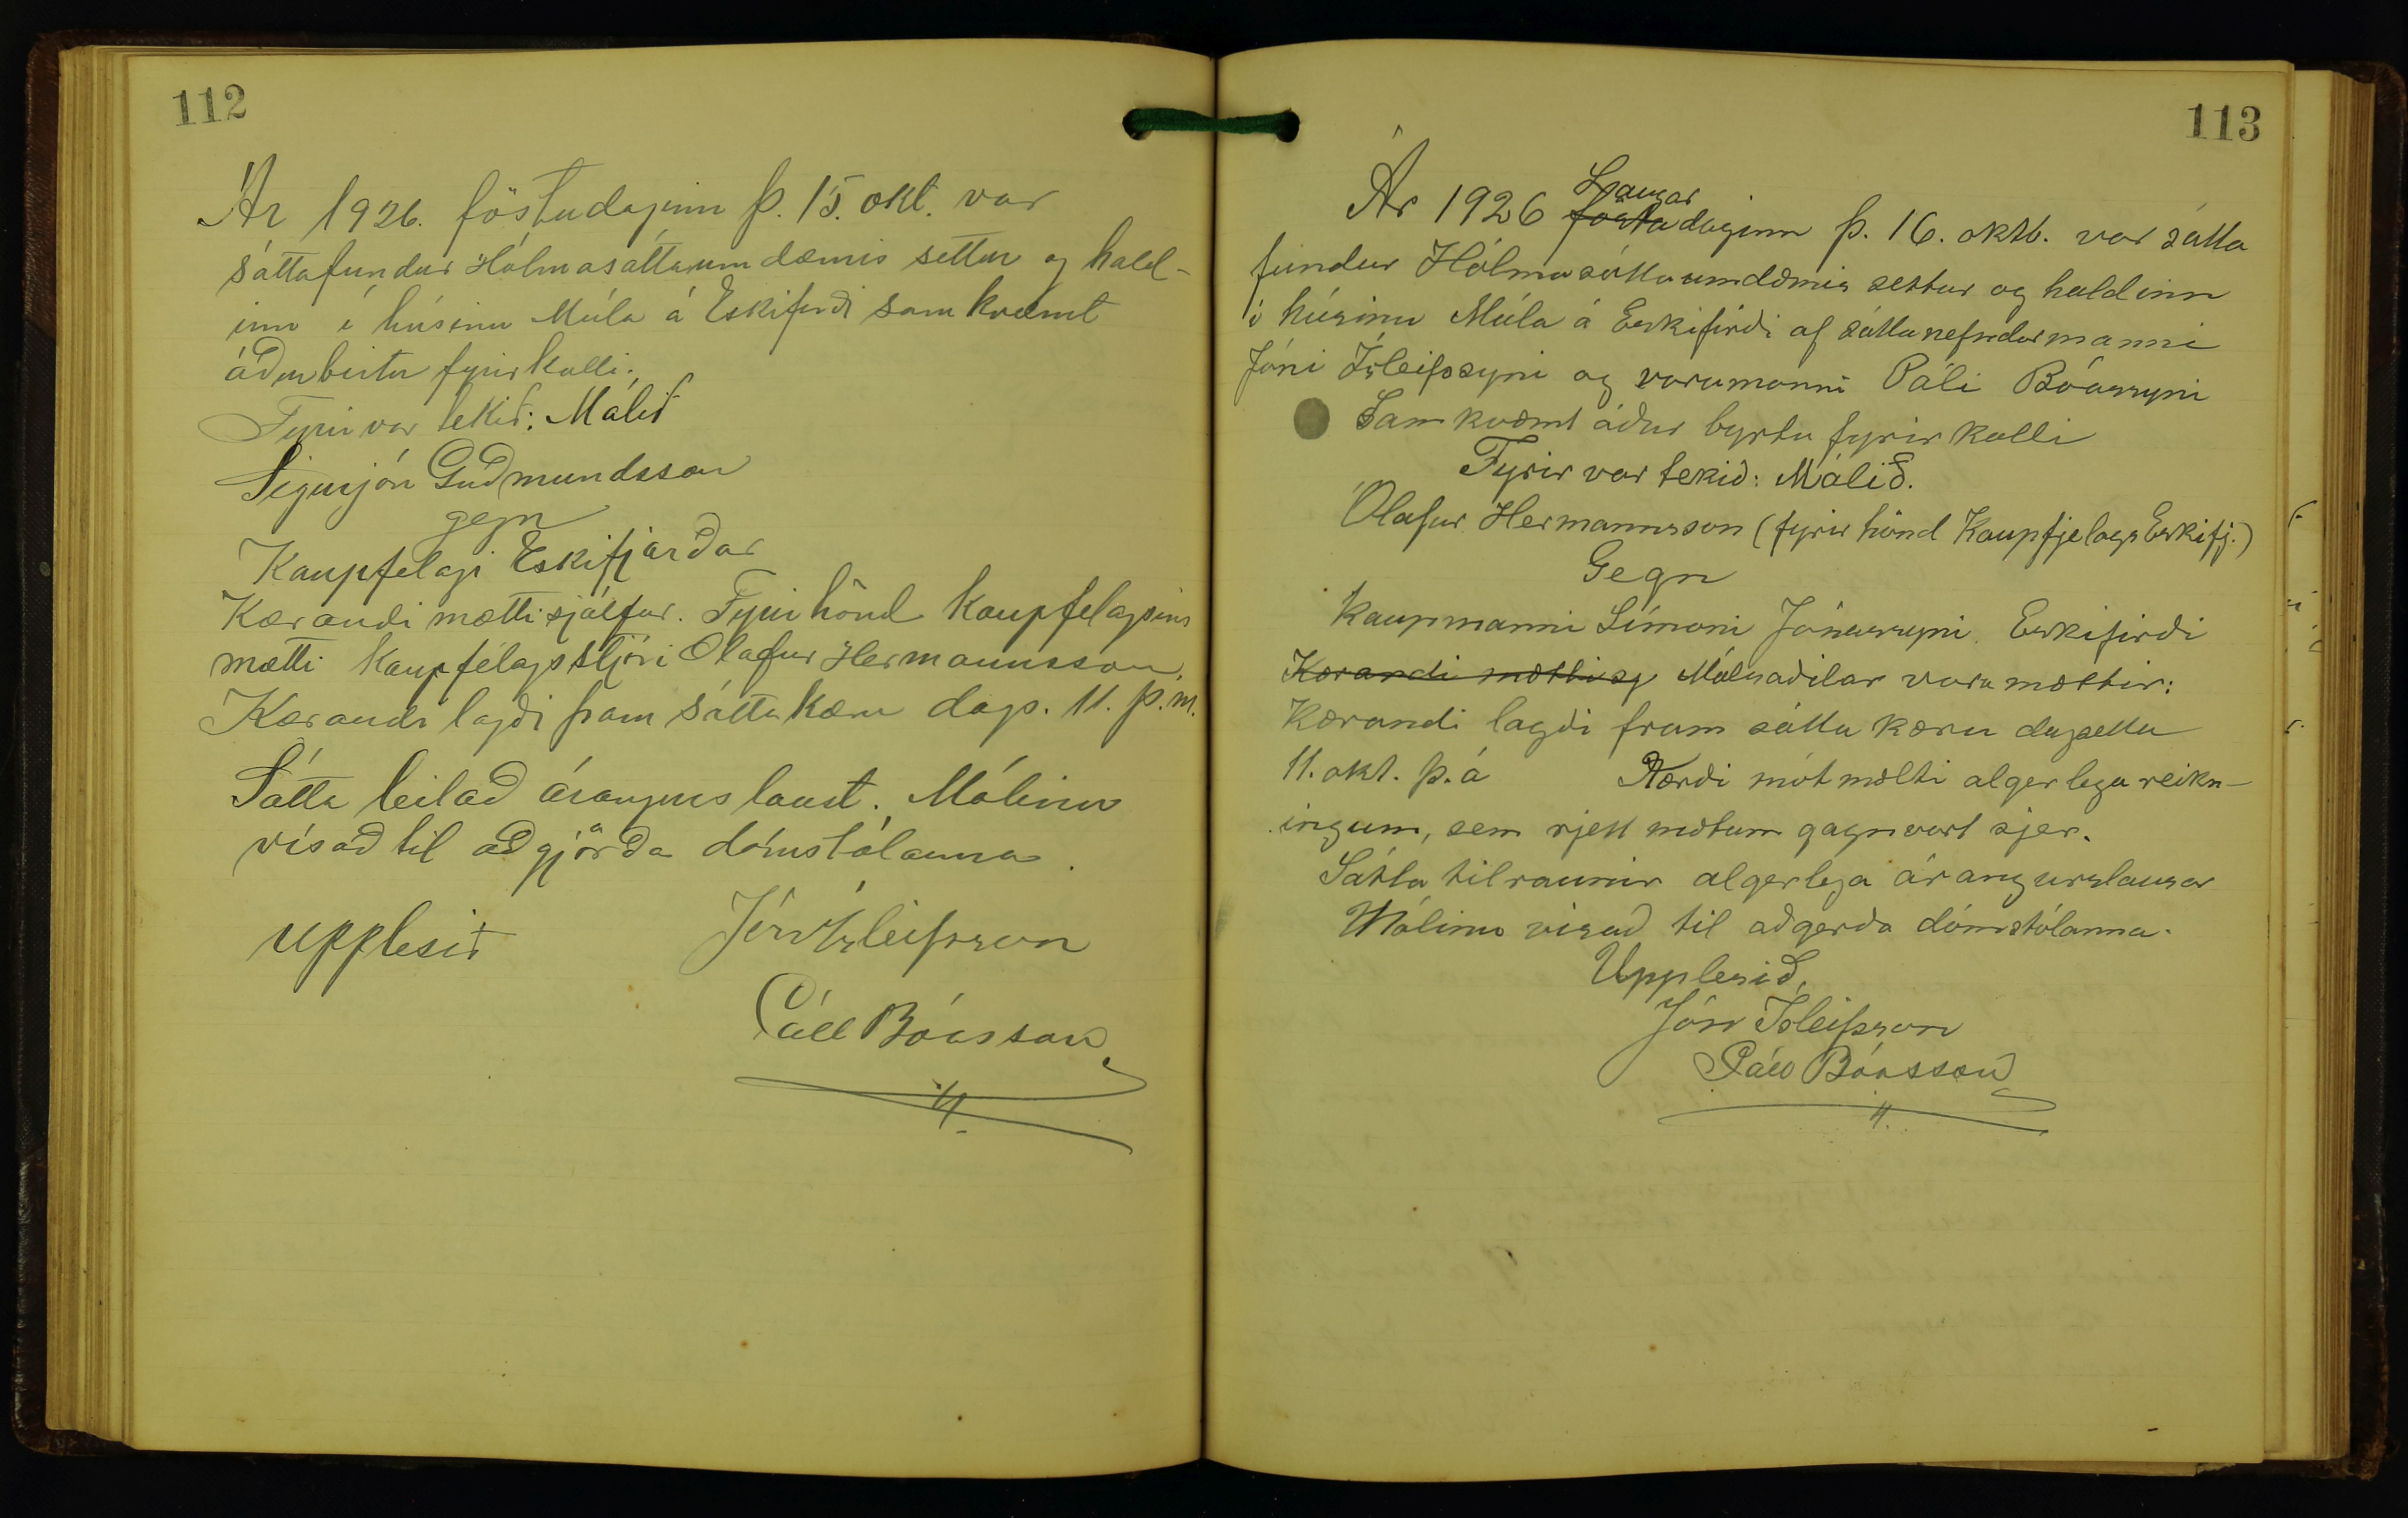 112
Ár 1926. föstudaginn þ. 15. okt. var
sáttafundur Hólmasáttaumdæmis settur og hald-
inn í húsinu Múla á Eskifirði samkvæmt
áðurbirtu fyrirkalli.
Fyrir var tekið: Málið
Sigurjón Guðmundsson
gegn
Kaupfelagi Eskifjarðar
Kærandi mætti sjálfur. Fyrir hönd Kaupfelagsins
mætti Kaupfélagsstjóri Olafur Hermannsson.
Kærandi lagði fram sáttakæru dags. 11. þ.m.
Sátta leitað árangurslaust. Málinu
vísað til aðgjörða dómstólanna.
upplesið
Jón Ísleifsson
Páll Bóasson
113
Ár 1926 fösta Laugar daginn þ. 16. oktb. var sátta
fundur Hólmasáttaumdæmis settur og haldinn
í húsinu Múla á Eskifirði af sáttanefndarmanni
Jóni Ísleifssyni og varamanni Páli Bóassyni
Samkvæmt áður byrtu fyrirkalli
Fyrir var tekið: Málið.
Ólafur Hermannsson (fyrir hönd Kaupfjelags Eskifj.)
Gegn
kaupmanni Símoni Jónassyni Eskifirði
Kærandi mætti sj Málsaðilar voru mættir:
Kærandi lagði fram sáttakæru dagsettu
11. okt. þ.á Kærði mótmælti algerlega reikn-
ingum, sem rjett mætum gagnvart sjer.
Sátta tilraunir algerlega árangurslausar
Málinu vísað til aðgerða dómstólanna.
Upplesið,
Jón Ísleifsson
Páll Bóasson